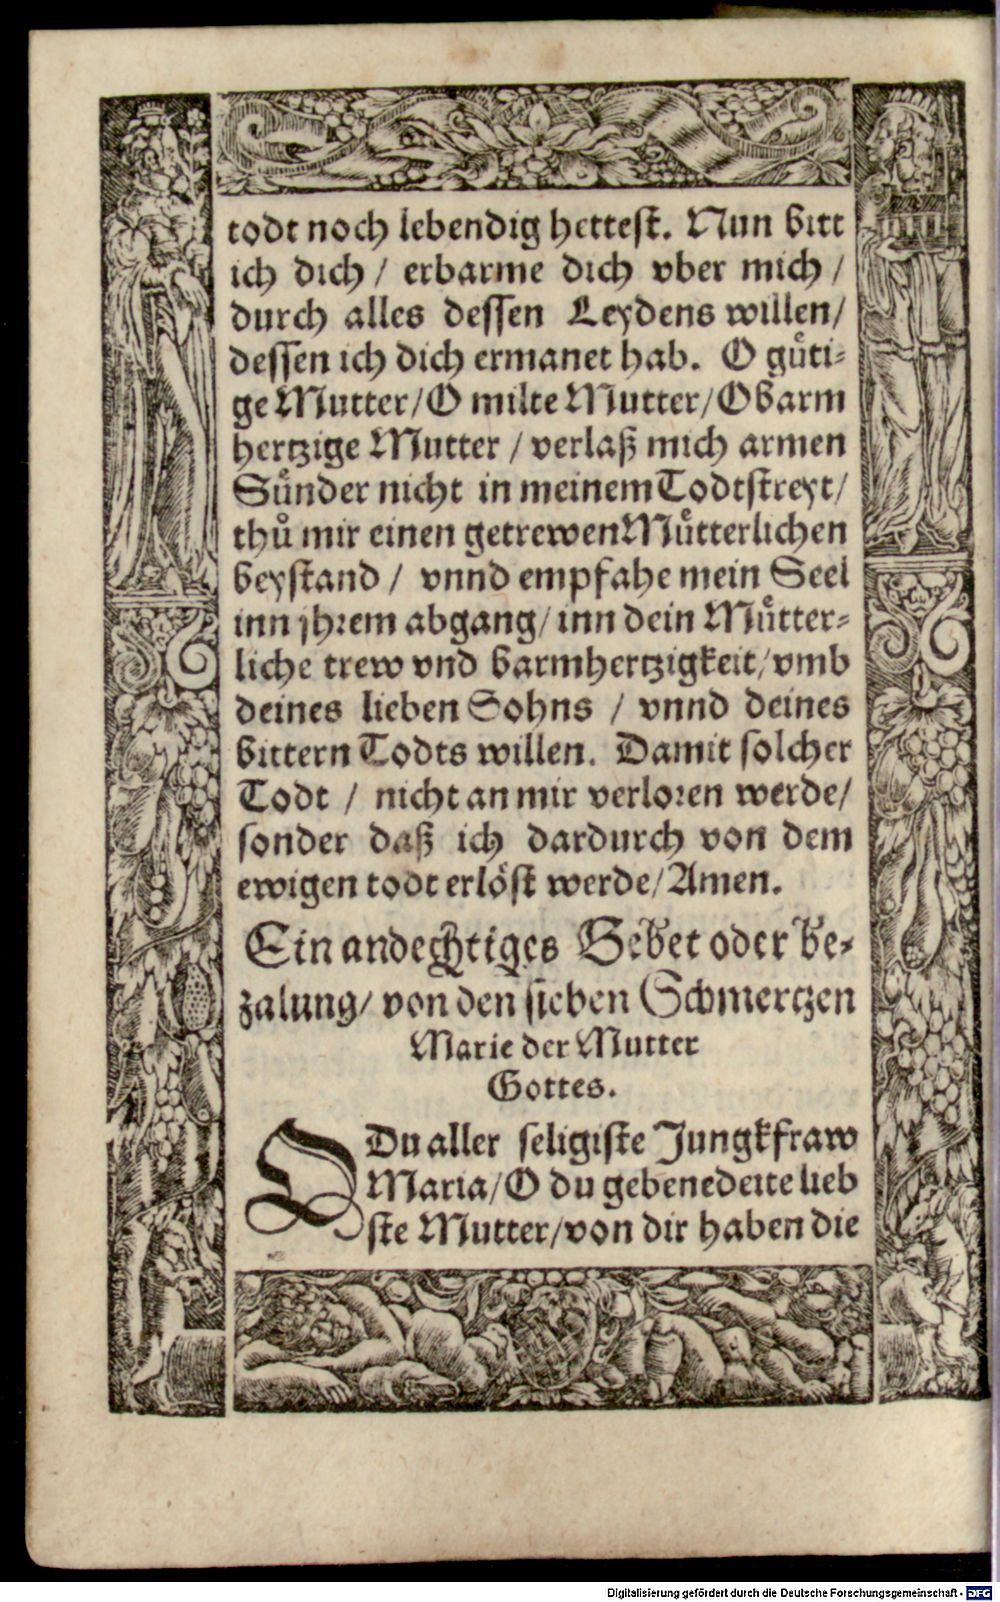 todt noch lebendig hettest. Nun bitt
ich dich / erbarme dich vber mich /
durch alles dessen Leydens willen/
dessen ich dich ermanet hab. O guͤti-
ge Mutter/O milte Mutter/O barm
hertzige Mutter / verlaß mich armen
Suͤnder nicht in meinem Todtstreyt/
thuͦ mir einen getrewen Muͤtterlichen
beystand / vnnd empfahe mein Seel
inn jhrem abgang/ inn dein Muͤtter-
liche trew vnd barmhertzigkeit/vmb
deines lieben Sohns / vnnd deines
bittern Todts willen. Damit solcher
Todt / nicht an mir verloren werde/
sonder daß ich dardurch von dem
ewigen todt erlöst werde/Amen.
Ein andechtiges Gebet oder be-
zalung/ von den sieben Schmertzen
Marie der Mutter
Gottes.
O Du aller seligiste Jungkfraw
Maria/O du gebenedeite lieb
ste Mutter/von dir haben die
Digitalisierung gefördert durch die Deutsche Forschungsgemeinschaft - DFG